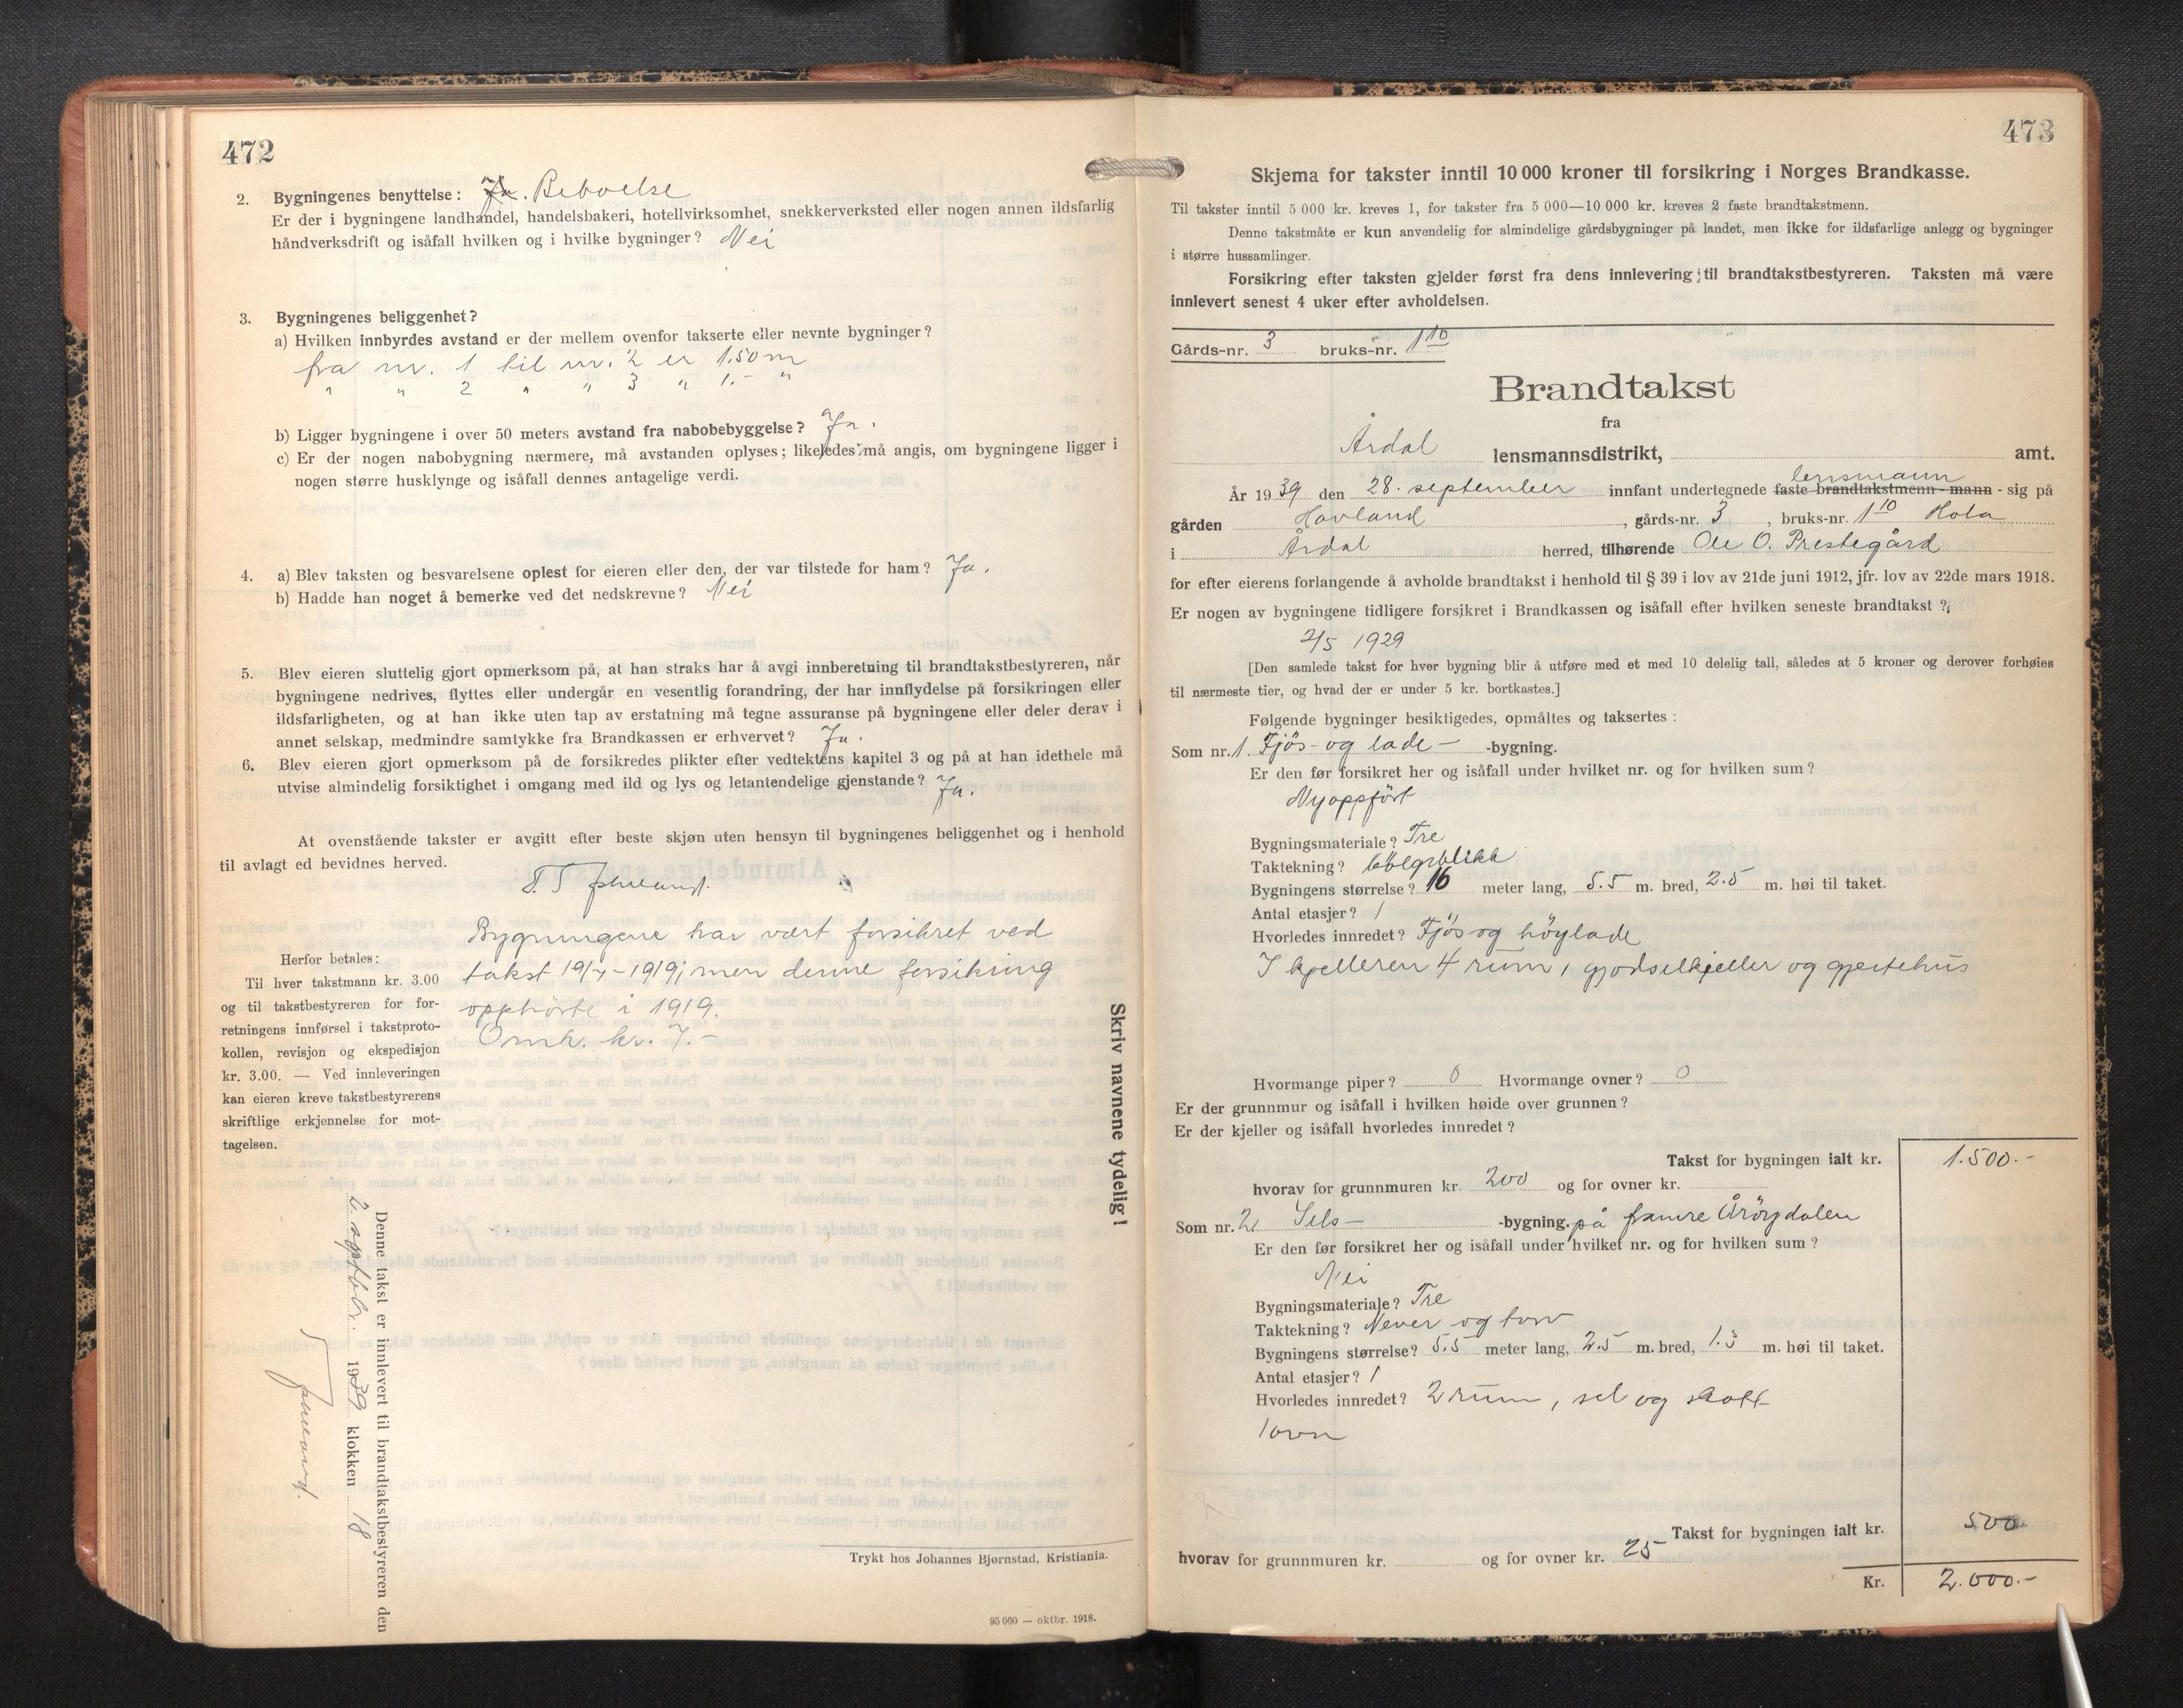 472
2. Bygningenes benyttelse: Ja. Beboelse
Er der i bygningene landhandel, handelsbakeri, hotellvirksomhet, snekkerverksted eller nogen annen ildsfarlig
håndverksdrift og isåfall hvilken og i hvilke bygninger? Nei
3. Bygningenes beliggenhet?
a) Hvilken innbyrdes avstand er der mellem ovenfor takserte eller nevnte bygninger?
fra nr. 1 til nr. 2 er 1.50 m
" " 2 " " 3 " 1.- "
b) Ligger bygningene i over 50 meters avstand fra nabobebyggelse? Ja.
c) Er der nogen nabobygning nærmere, må avstanden oplyses; likeledes må angis, om bygningene ligger i
nogen større husklynge og isåfall dennes antagelige verdi.
4. a) Blev taksten og besvarelsene oplest for eieren eller den, der var tilstede for ham? Ja.
b) Hadde han noget å bemerke ved det nedskrevne? Nei
5. Blev eieren sluttelig gjort opmerksom på, at han straks har å avgi innberetning til brandtakstbestyreren, når
bygningene nedrives, flyttes eller undergår en vesentlig forandring, der har innflydelse på forsikringen eller
ildsfarligheten, og at han ikke uten tap av erstatning må tegne assuranse på bygningene eller deler derav i
annet selskap, medmindre samtykke fra Brandkassen er erhvervet? Ja.
6. Blev eieren gjort opmerksom på de forsikredes plikter efter vedtektens kapitel 3 og på at han idethele må
utvise almindelig forsiktighet i omgang med ild og lys og letantendelige gjenstande? Ja.
At ovenstående takster er avgitt efter beste skjøn uten hensyn til bygningenes beliggenhet og i henhold
til avlagt ed bevidnes herved.
Bygningene har vært forsikret ved
takst 19/4-1919; men denne forsikring
opphörte i 1919.
Omk. kr. 7.-
Herfor betales:
Til hver takstmann kr. 3.00
og til takstbestyreren for for-
retningens innførsel i takstproto-
kollen, revisjon og ekspedisjon
kr. 3.00. — Ved innleveringen
kan eieren kreve takstbestyrerens
skriftlige erkjennelse for mot-
tagelsen.
Skriv navnene tydelig!
Denne takst er innlevert til brandtakstbestyreren den
2. septbr. 1939 klokken 18
Trykt hos Johannes Bjørnstad, Kristiania.
95 000 — oktbr. 1918.
473
Skjema for takster inntil 10 000 kroner til forsikring i Norges Brandkasse.
Til takster inntil 5 000 kr. kreves 1, for takster fra 5 000—10 000 kr. kreves 2 faste brandtakstmenn.
Denne takstmåte er kun anvendelig for almindelige gårdsbygninger på landet, men ikke for ildsfarlige anlegg og bygninger
i større hussamlinger.
Forsikring efter taksten gjelder først fra dens innlevering til brandtakstbestyreren. Taksten må være
innlevert senest 4 uker efter avholdelsen.
Gårds-nr. 3 bruks-nr. 1 10
Brandtakst
fra
Årdal lensmannsdistrikt, amt.
lensmann
År 1939 den 28. september innfant undertegnede faste brandtakstmenn - mann - sig på
gården Hovland, gårds-nr. 3, bruks-nr. 1 10 Hola
i Årdal herred, tilhørende Ole O. Prestegård
for efter eierens forlangende å avholde brandtakst i henhold til § 39 i lov av 21de juni 1912, jfr. lov av 22de mars 1918.
Er nogen av bygningene tidligere forsikret i Brandkassen og isåfall efter hvilken seneste brandtakst?
2/5 1929
[Den samlede takst for hver bygning blir å utføre med et med 10 delelig tall, således at 5 kroner og derover forhøies
til nærmeste tier, og hvad der er under 5 kr. bortkastes.]
Følgende bygninger besiktigedes, opmåltes og taksertes:
Som nr. 1. Fjös- og lade- -bygning.
Er den før forsikret her og isåfall under hvilket nr. og for hvilken sum?
Nyoppfört
Bygningsmateriale? Tre
Taktekning? bölgeblikk
Bygningens størrelse? 16 meter lang, 5.5 m. bred, 2.5 m. høi til taket.
Antal etasjer? 1
Hvorledes innredet? Fjös og höylade
I kjelleren 4 rum, gjödselkjeller og gjeitehus
Hvormange piper? 0 Hvormange ovner? 0
Er der grunnmur og isåfall i hvilken høide over grunnen?
Er der kjeller og isåfall hvorledes innredet?
Takst for bygningen ialt kr. 1.500.-
hvorav for grunnmuren kr. 200 og for ovner kr.
Som nr. 2 Sels- -bygning. på framre Åröydalen
Er den før forsikret her og isåfall under hvilket nr. og for hvilken sum?
Nei
Bygningsmateriale? Tre
Taktekning? Never og torv
Bygningens størrelse? 5.5 meter lang, 2.5 m. bred, 1.3 m. høi til taket.
Antal etasjer? 1
Hvorledes innredet? 2 rum, sel og skott
1 ovn
Takst for bygningen ialt kr. 500
hvorav for grunnmuren kr. og for ovner kr. 25
Kr. 2.000.-